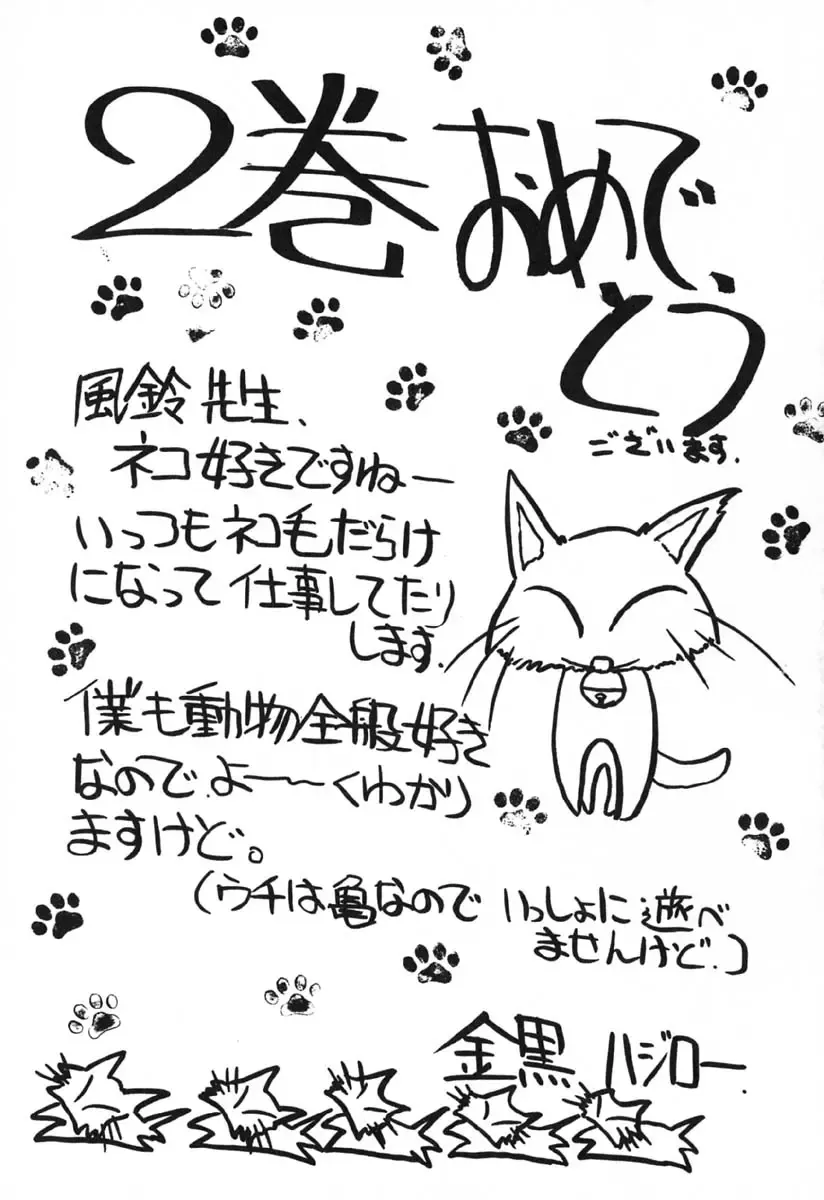 2巻おめで、
とう
ございます.
風鈴先生、
ネコ好きですねー
いっつもネコ毛だらけ
になって仕事してたり
します.
僕も動物全般好き
なのでよ〜〜くわかり
ますけど。
(ウチは亀なので いっしょに遊べ
ませんけど.)
金黒 ハジロー.